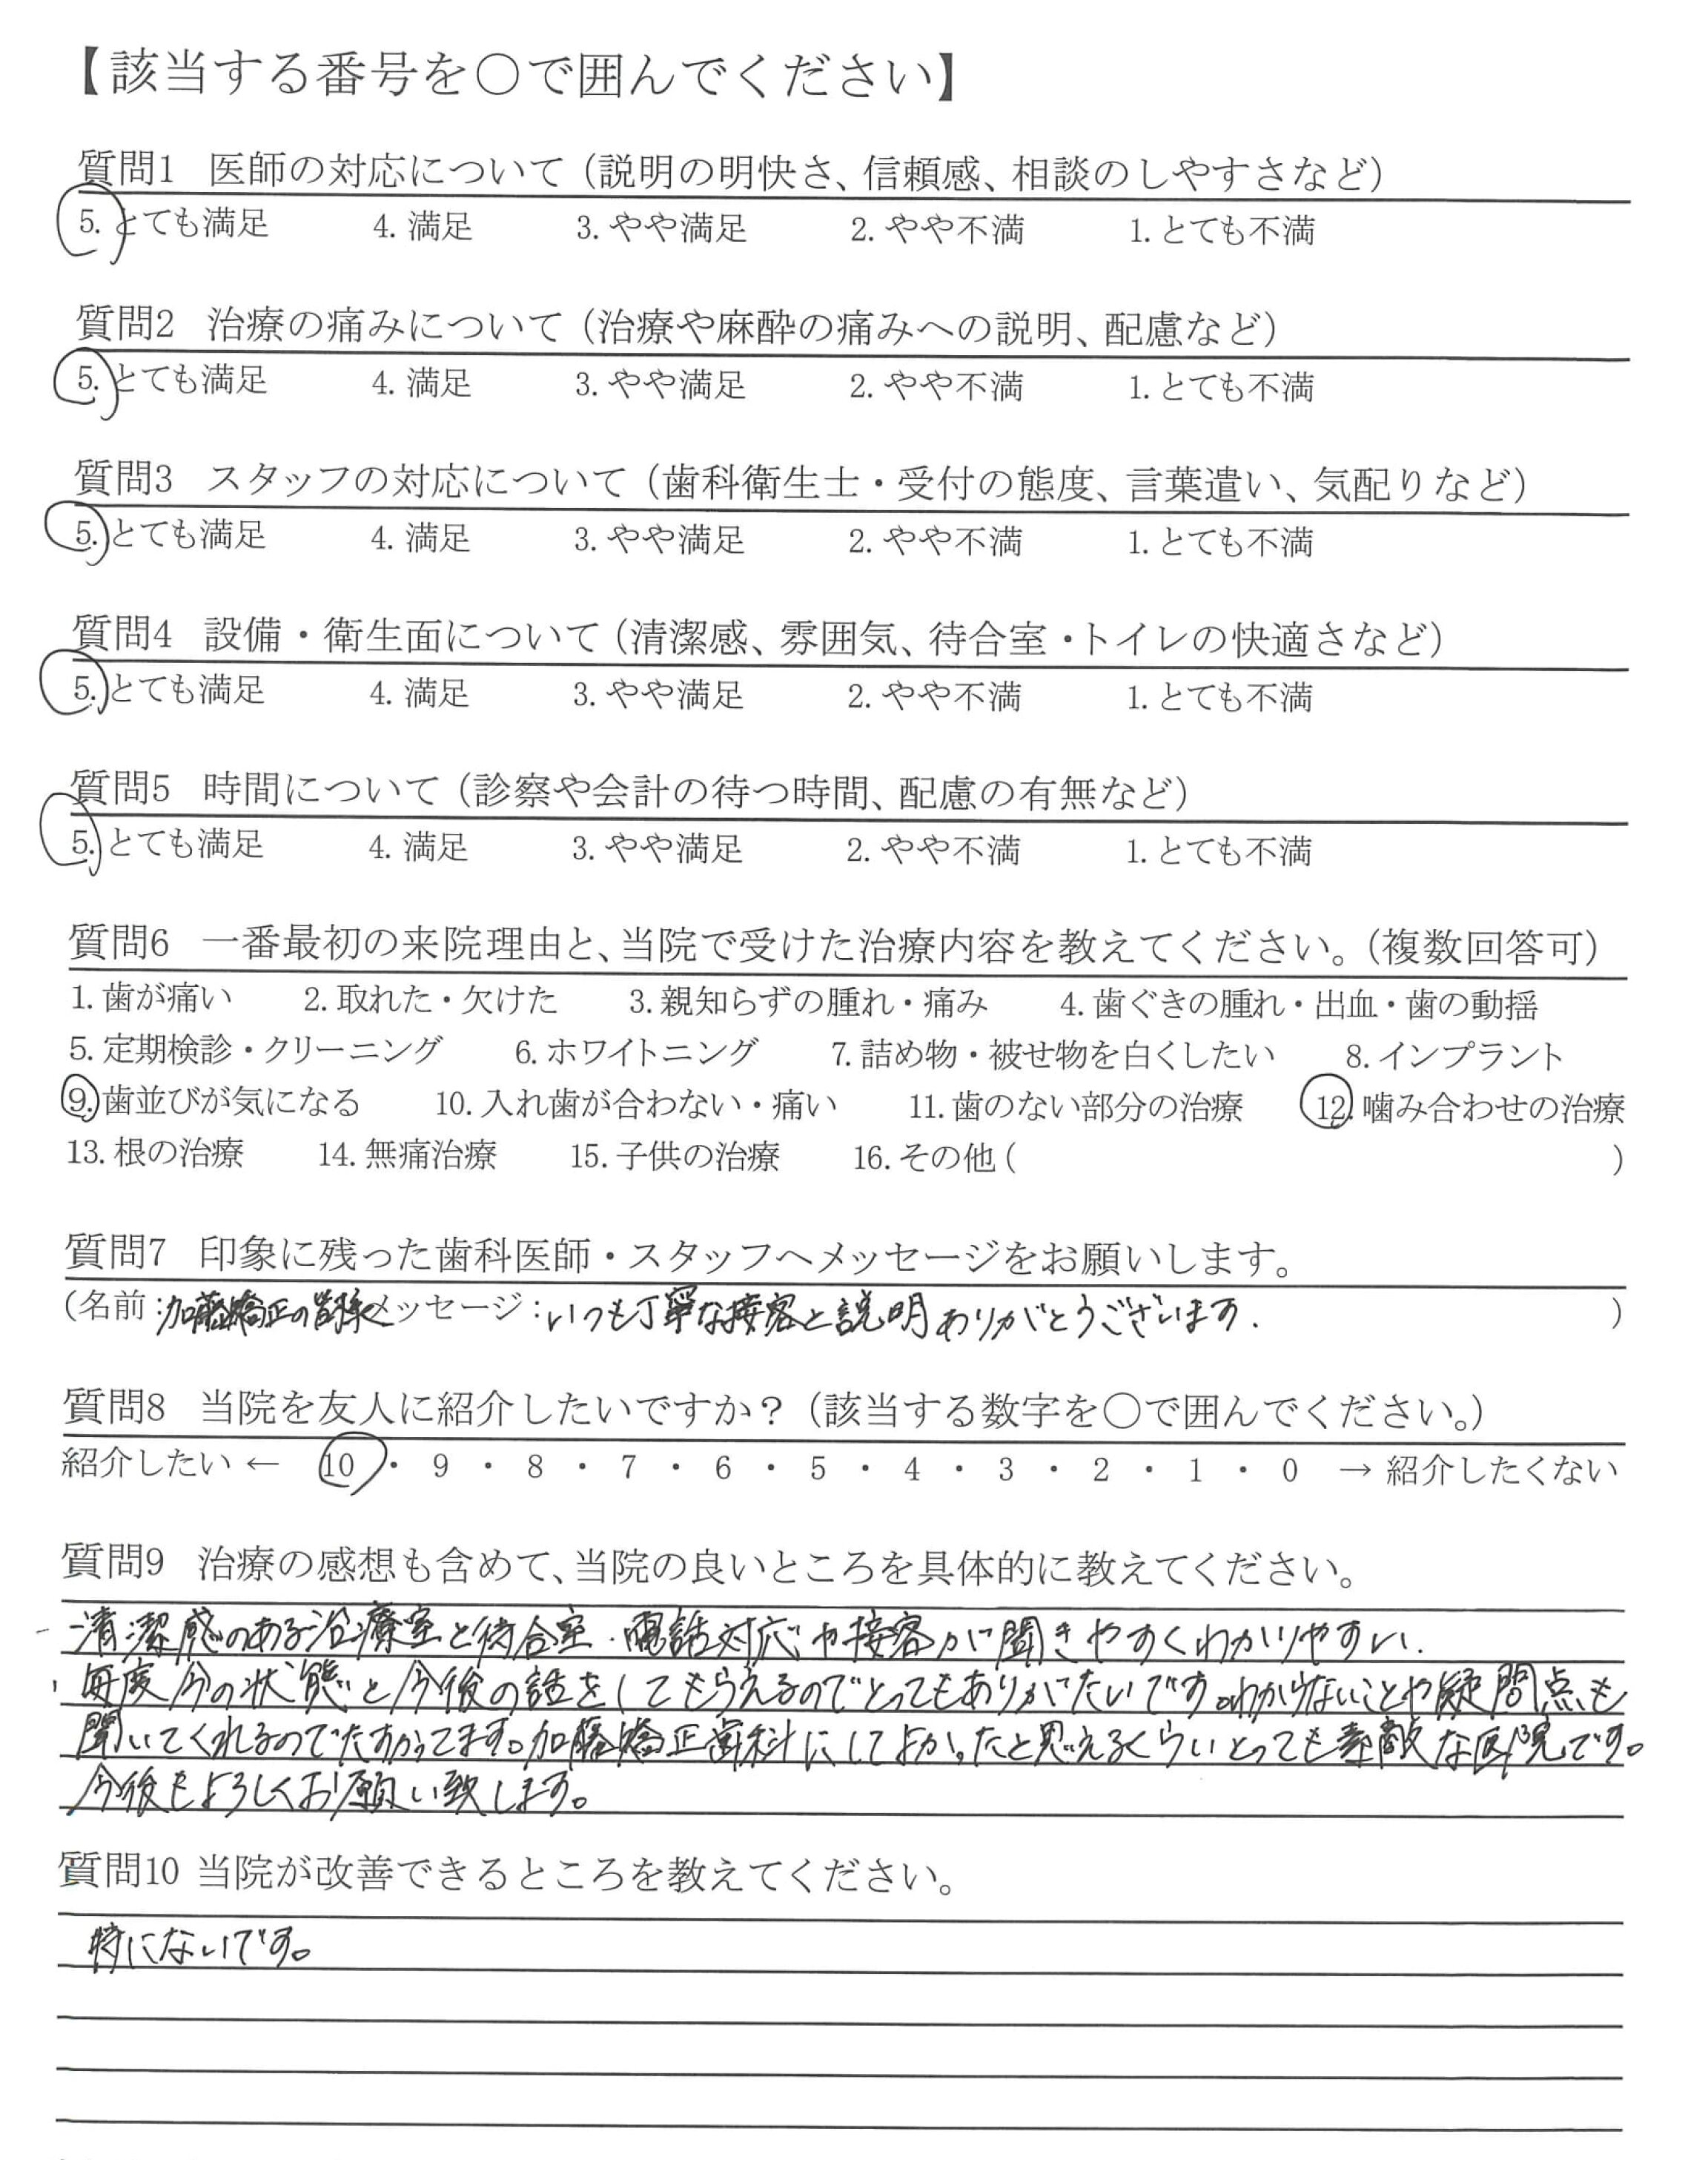 【該当する番号を〇で囲んでください】
質問1 医師の対応について（説明の明快さ、信頼感、相談のしやすさなど）
5. とても満足 4. 満足 3. やや満足 2. やや不満 1. とても不満
質問2 治療の痛みについて（治療や麻酔の痛みへの説明、配慮など）
5. とても満足 4. 満足 3. やや満足 2. やや不満 1. とても不満
質問3 スタッフの対応について（歯科衛生士・受付の態度、言葉遣い、気配りなど）
5. とても満足 4. 満足 3. やや満足 2. やや不満 1. とても不満
質問4 設備・衛生面について（清潔感、雰囲気、待合室・トイレの快適さなど）
5. とても満足 4. 満足 3. やや満足 2. やや不満 1. とても不満
質問5 時間について（診察や会計の待つ時間、配慮の有無など）
5. とても満足 4. 満足 3. やや満足 2. やや不満 1. とても不満
質問6 一番最初の来院理由と、当院で受けた治療内容を教えてください。（複数回答可）
1. 歯が痛い 2. 取れた・欠けた 3. 親知らずの腫れ・痛み 4. 歯ぐきの腫れ・出血・歯の動揺
5. 定期検診・クリーニング 6. ホワイトニング 7. 詰め物・被せ物を白くしたい 8. インプラント
9. 歯並びが気になる 10. 入れ歯が合わない・痛い 11. 歯のない部分の治療 12. 噛み合わせの治療
13. 根の治療 14. 無痛治療 15. 子供の治療 16. その他（ ）
質問7 印象に残った歯科医師・スタッフへメッセージをお願いします。
（名前：加藤矯正の皆様 メッセージ：いつも丁寧な接客と説明ありがとうございます. ）
質問8 当院を友人に紹介したいですか？（該当する数字を〇で囲んでください。）
紹介したい ← 10 ・ 9 ・ 8 ・ 7 ・ 6 ・ 5 ・ 4 ・ 3 ・ 2 ・ 1 ・ 0 → 紹介したくない
質問9 治療の感想も含めて、当院の良いところを具体的に教えてください。
清潔感のある治療室と待合室. 電話対応や接客が聞きやすくわかりやすい.
毎度今の状態と今後の話をしてもらえるのでとってもありがたいです。わからないことや疑問点も
聞いてくれるのでたすかってます。加藤矯正歯科にしてよかったと思えるくらいとっても素敵な医院です。
今後もよろしくお願い致します。
質問10 当院が改善できるところを教えてください。
特にないです。